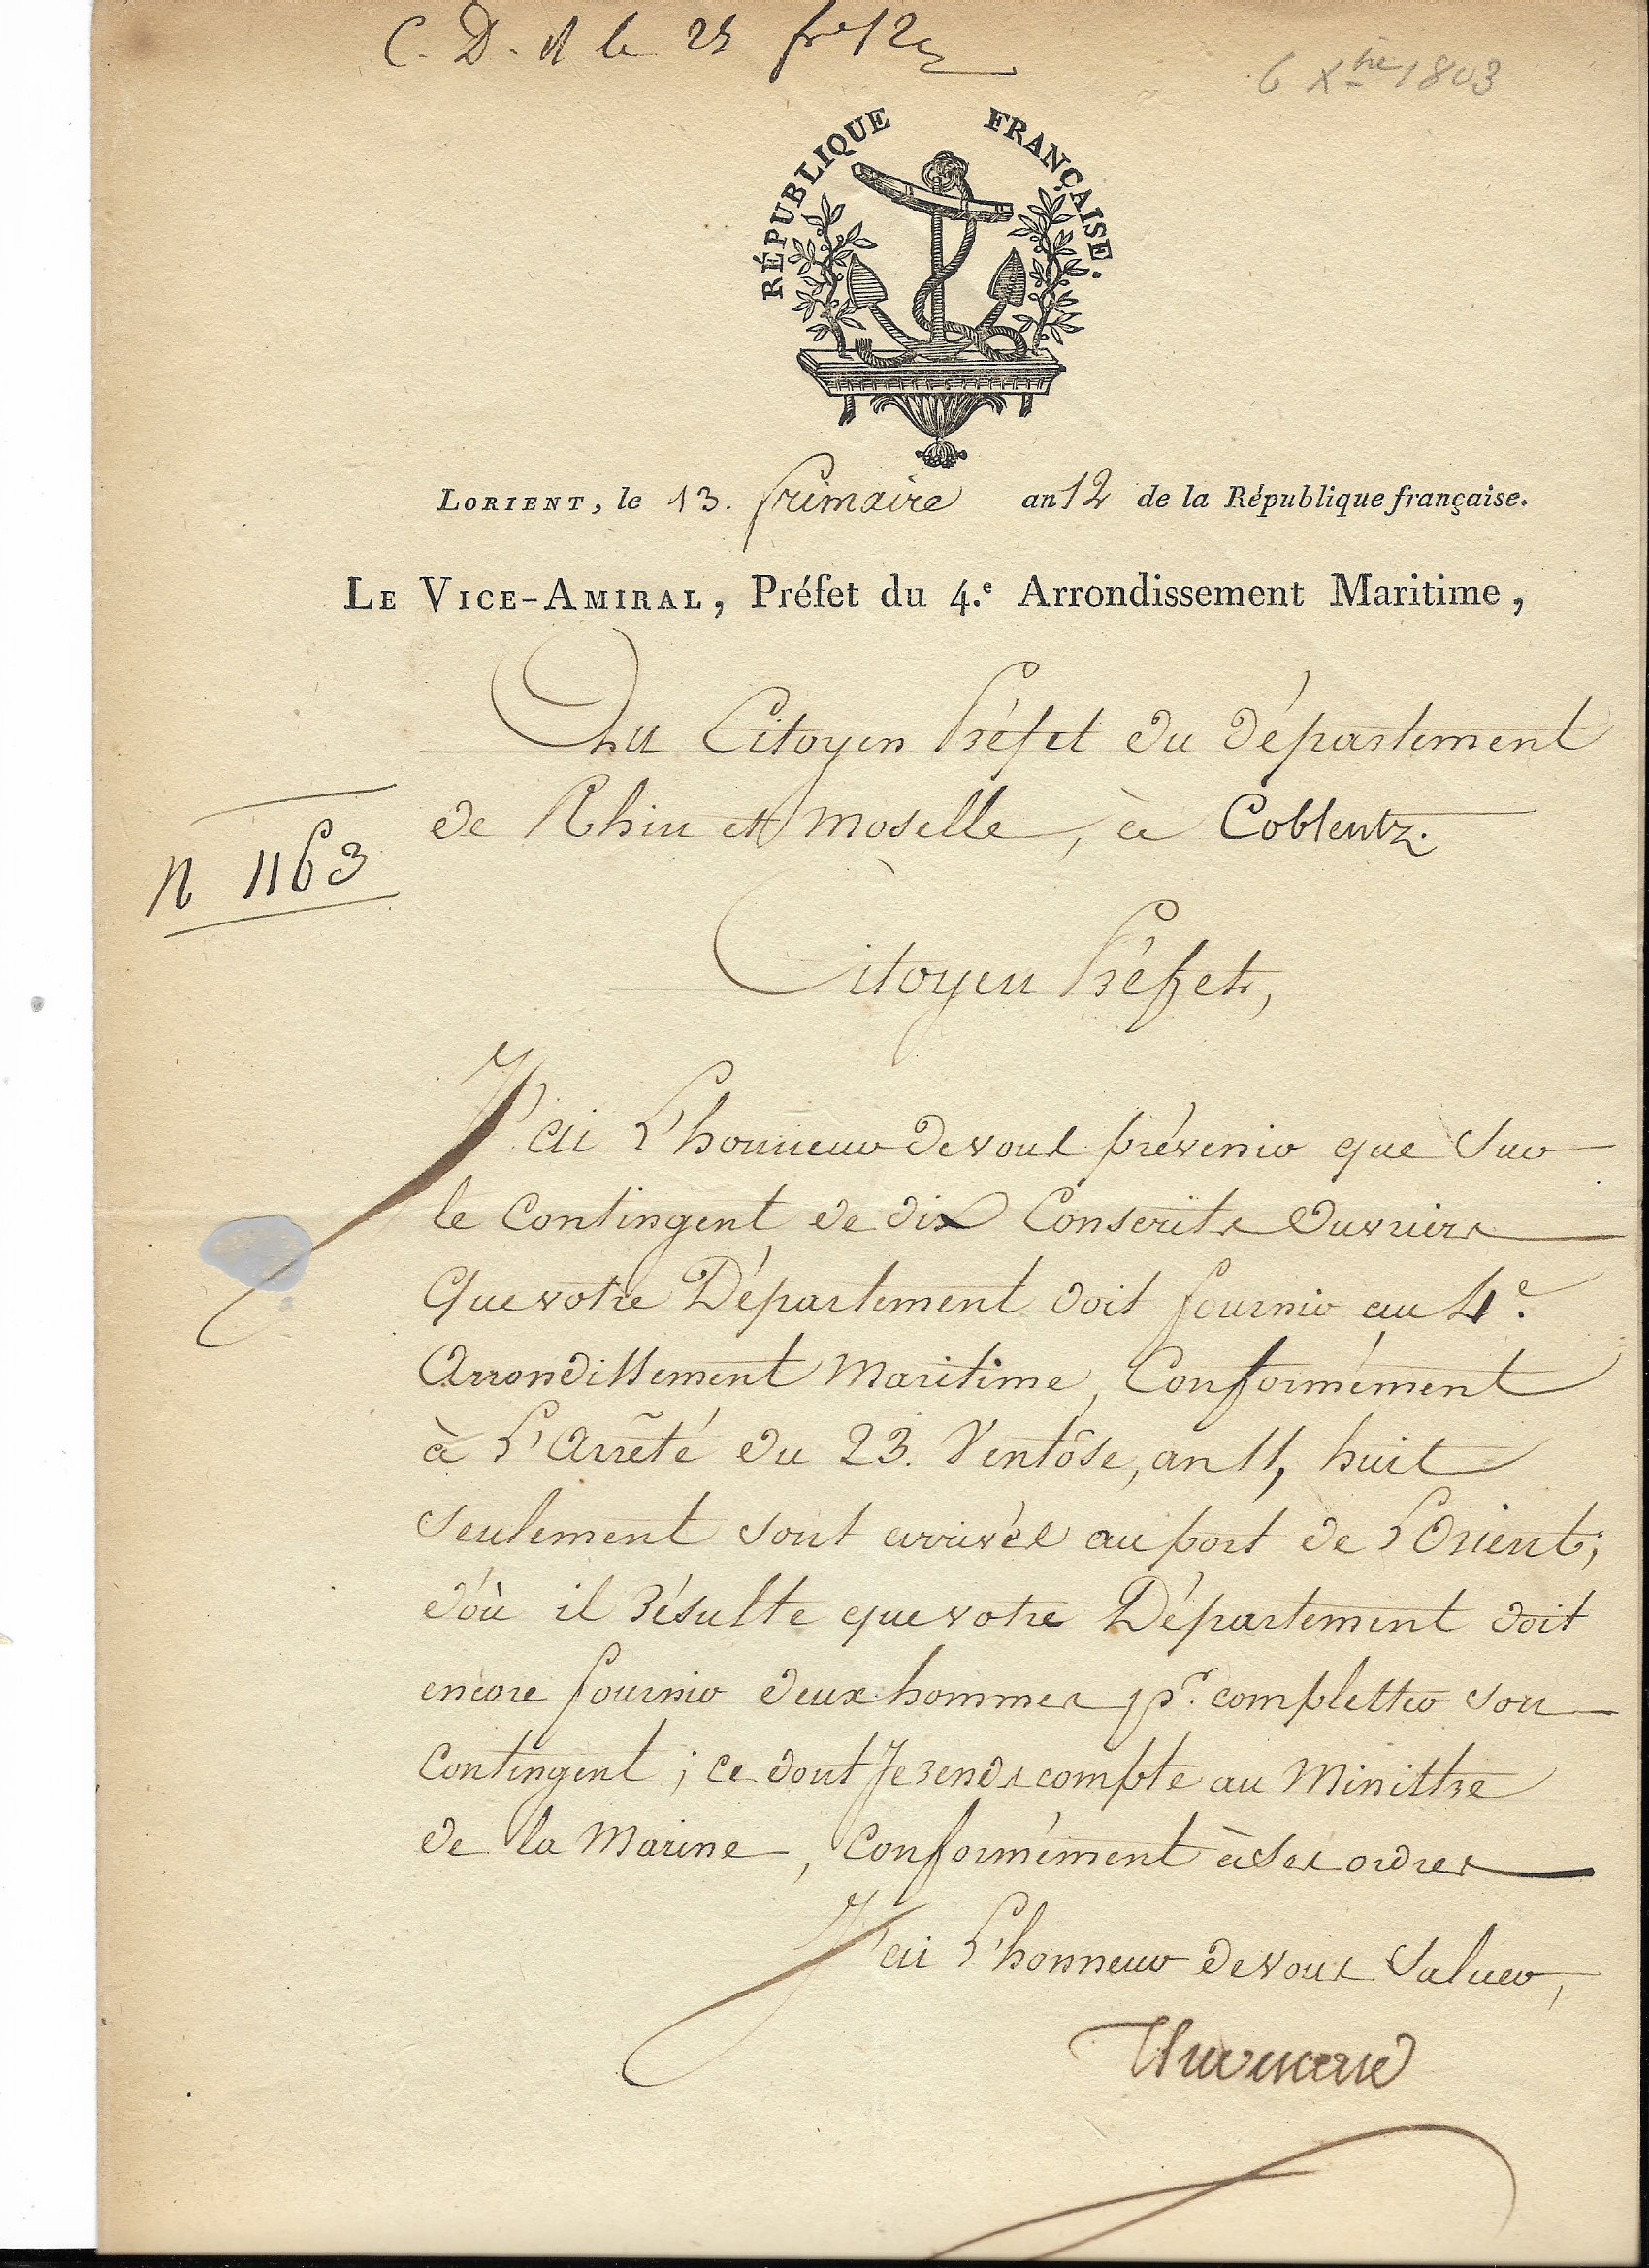 C. D. A le 25 fre 12
6 Xbre 1803
RÉPUBLIQUE FRANÇAISE.
LORIENT, le 13. frimaire an 12 de la République française.
LE VICE-AMIRAL, Préfet du 4.e Arrondissement Maritime,
Au Citoyen Préfet du département
de Rhin et Moselle, à Coblentz.
n 1163
Citoyen Préfet,
J'ai l'honneur de vous prévenir que Sur
le Contingent de dix Conscrits Ouvriers
Que votre Département doit fournir au 4e.
Arrondissement Maritime, Conformément
à L'Arrêté du 23. Ventôse, an 11, huit
Seulement sont arrivés au port de LOrient;
d'où il Résulte que votre Département doit
encore fournir deux hommes pr. completter son
Contingent; ce dont Je rends compte au Ministre
de la Marine, Conformément à Ses ordres
J'ai L'honneur de vous Saluer,
Thevenard